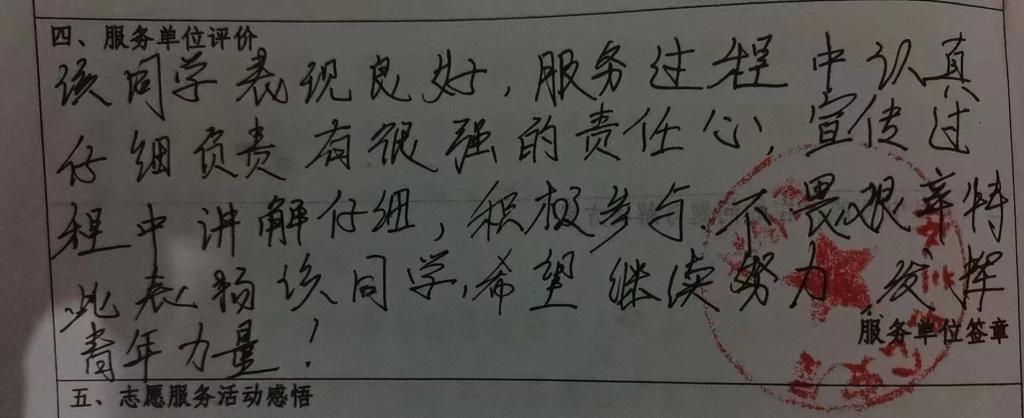 四、服务单位评价
该同学表现良好,服务过程中认真
仔细负责有很强的责任心,宣传过
程中讲解仔细,积极参与.不畏艰辛特
此表扬该同学,希望继续努力,发挥
青年力量!
服务单位签章
五、志愿服务活动感悟